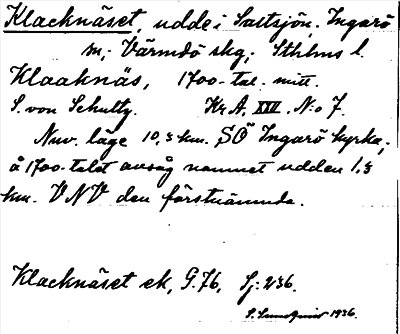 Klacknäset, udde i Saltsjön, Ingarö
sn; Värmdö skg; Sthlms l.
Klaaknäs, 1700-tal. mitt.
S. von Schultz. Kr. A. XXII. N:o 7.
Nuv. läge 10,3 km. SÖ Ingarö kyrka;
å 1700-talet avsåg namnet udden 1,3
km. VNV den förstnämnda.
Klacknäset ek, G.76, Sj: 236.
S. Sundqvist 1936.